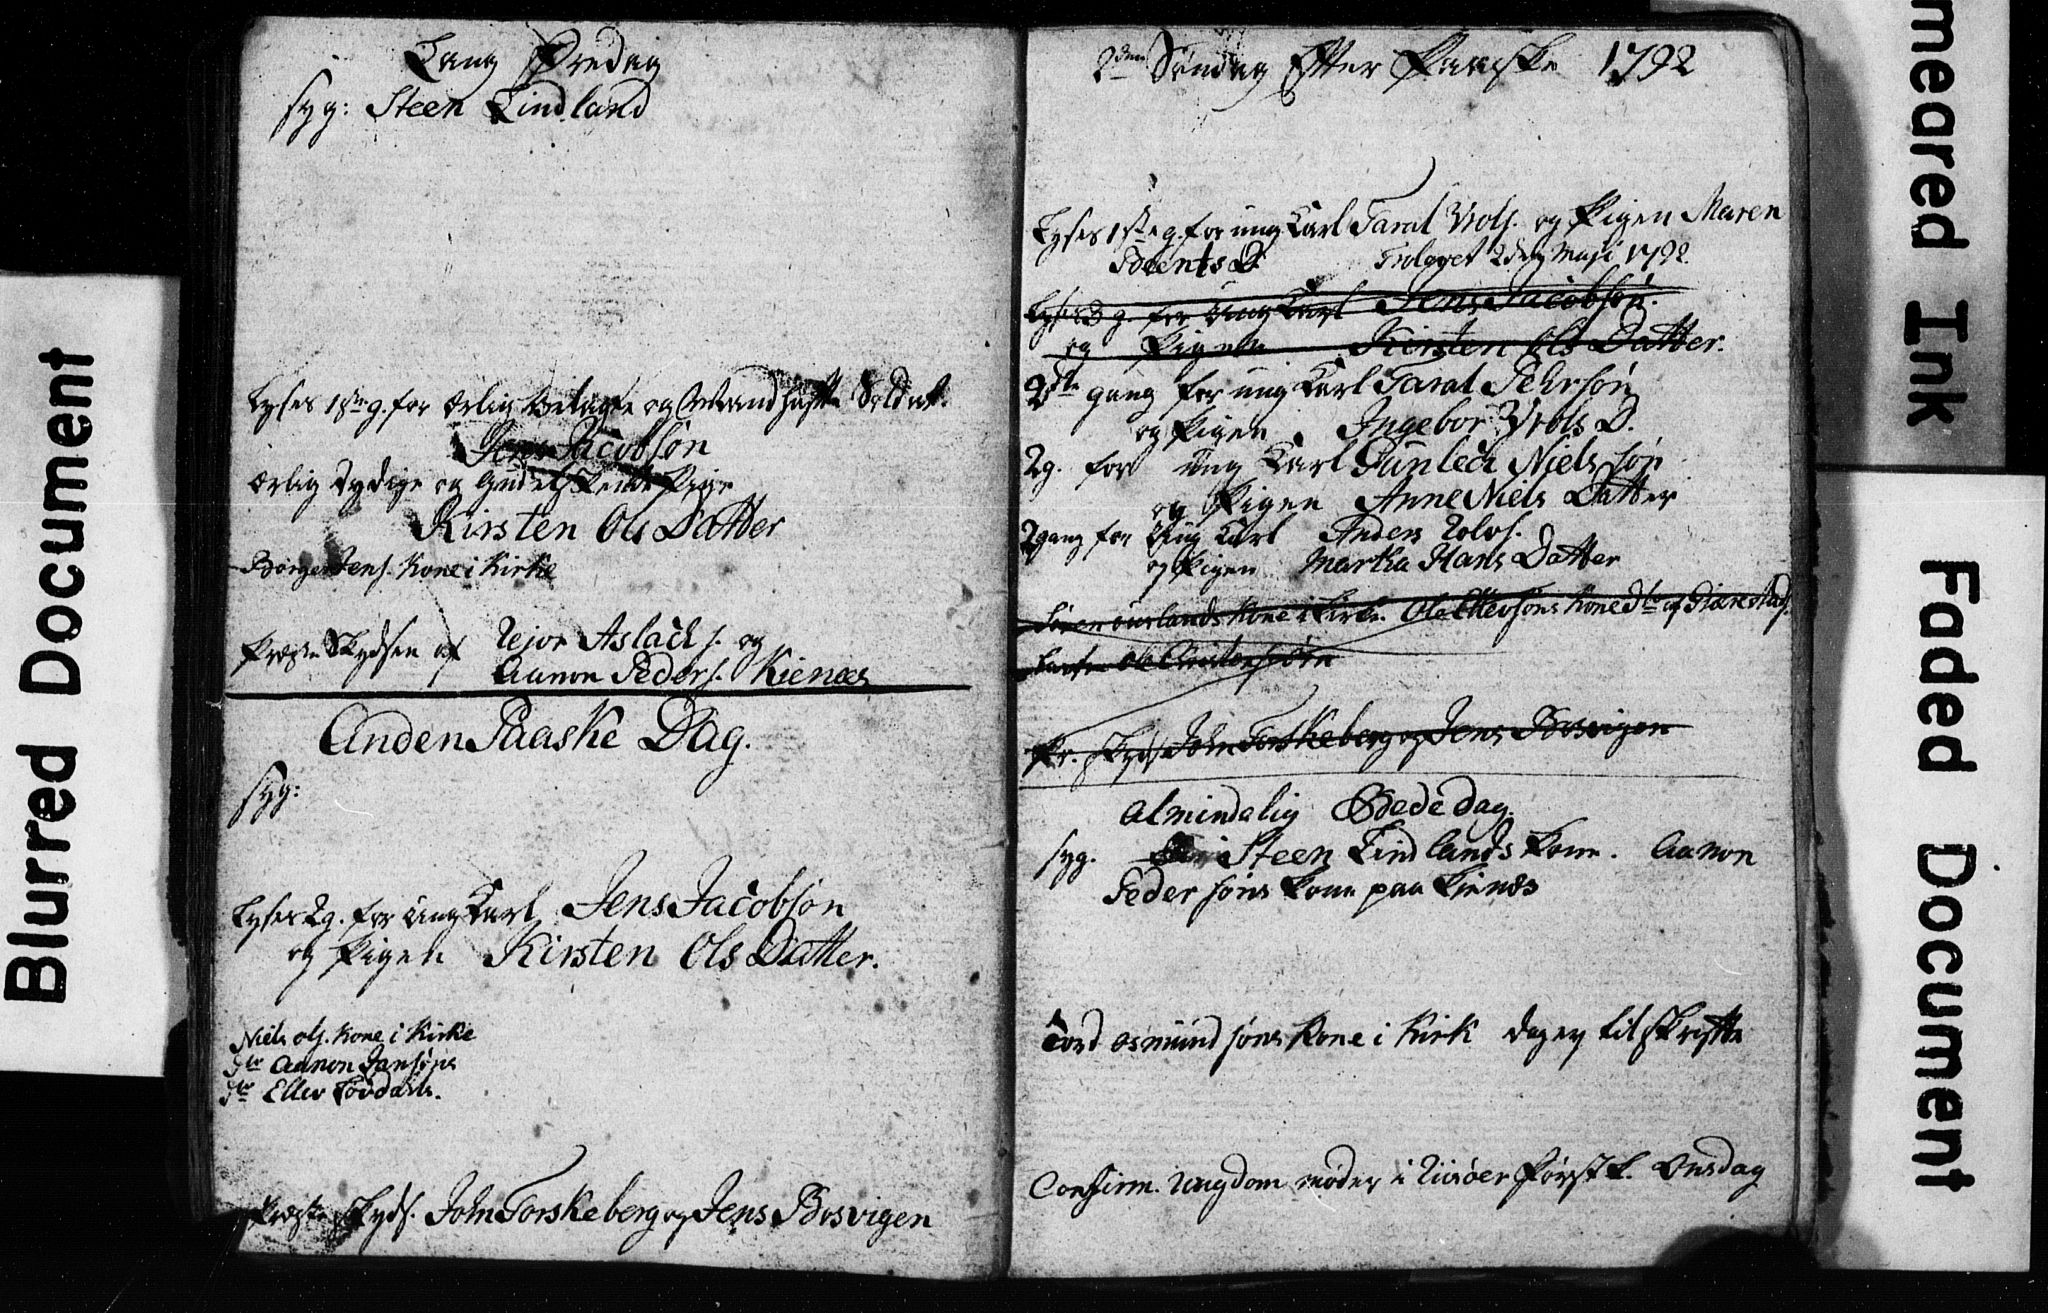 Lang Fredag
syg: Steen Lindland
Lyses 1ste g. for ærlig Velagte og Mandhafte Soldat
Jens Jacobsøn
ærlig Dydige og Gudelskende Pige
Kirsten Ols Datter
Børge Jens. Kone i Kirke
Præste Skydsen af Rejor Aslack s. og
Aanon Peders. Kienæs
Anden Paaske Dag.
syg:
Lyses 2 g. for Ung Karl Jens Jacobsøn
og Pigen Kirsten Ols Datter.
Niels Ols. Kone i Kirke
Dto Aanon Jansøns
Dto Ellev
Præste Skyds. John Torskeberg og Jens Bosvigen
2den Søndag Efter Paaske 1792
Lyses 1ste g. for ung Karl Taral Wols. og Pigen Maren
Bents D. Trolovet 2den Maji 1792
Lyses 3 g. for Ung Karl Jens Jacobsøn.
og Pigen Kirsten Ols Datter.
2den gang for ung Karl Taral Pehrsøn
og Pigen Ingebor Wols D.
2 g. for ung Karl Gunleck Nielssøn
og Pigen Anne Niels Datter
2 gang for Ung Karl Anders Rolvs.
og Pigen Martha Hans Datter
Søren Kone i Kirke. Ole Kone Dto af
Ole Christensøn
Pr. Skyds John Torskeberg og Jens Bosvigen
Almindelig Bededag
syg. Steen Lindlands Kone. Aanon
Pedersøns Kone paa Kienæs
Tord Osmundsøns Kone i Kirk Dagen til Skrifte
Confirm. Ungdom møder i Riisøer Førstk. Onsdag
Blurred Document
meared Ink
Faded Document